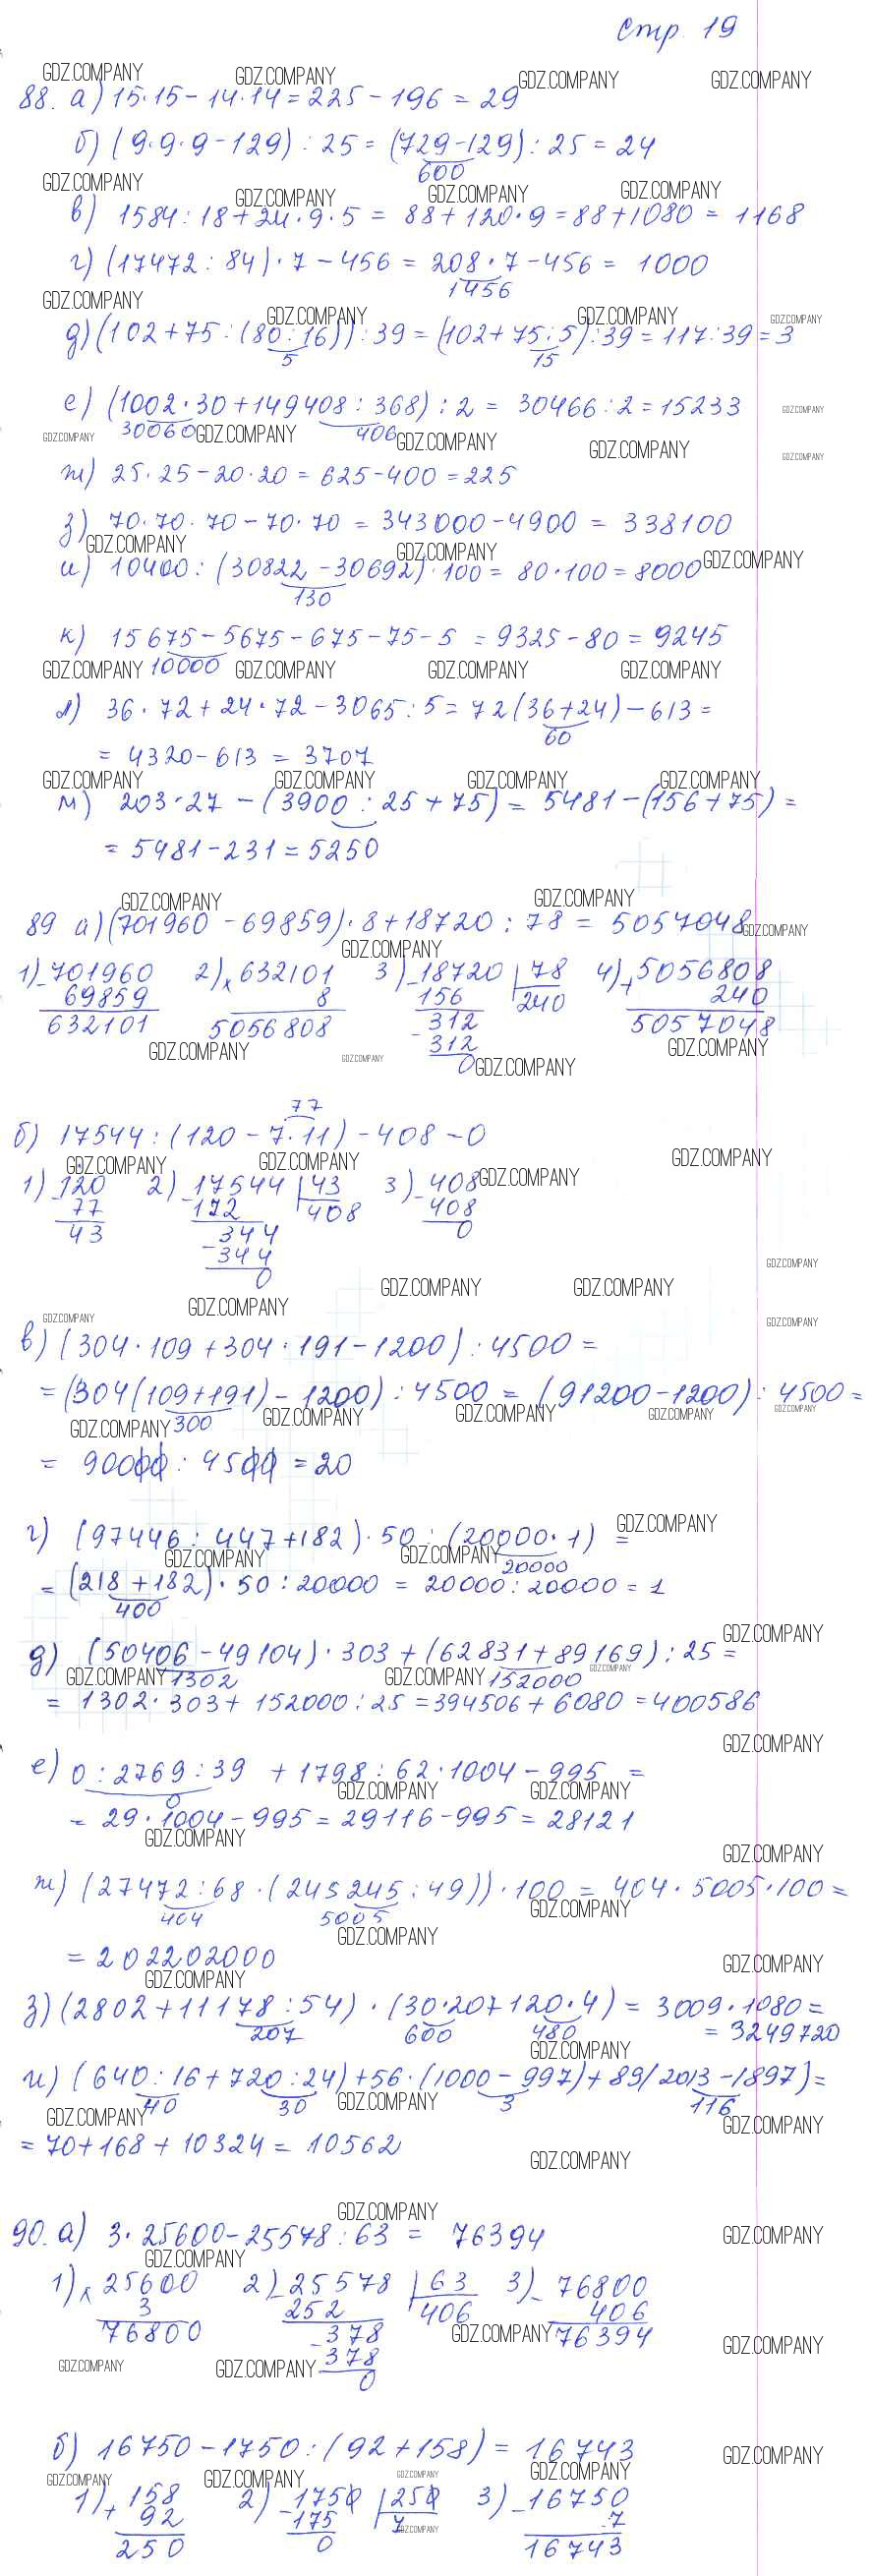 Стр. 19
88. а) 15·15-14·14=225-196=29
б) (9·9·9-129):25=(729-129):25=24
600
в) 1584:18+24·9·5=88+120·9=88+1080=1168
г) (17472:84)·7-456=208·7-456=1000
1456
д) (102+75:(80:16)):39=(102+75:5):39=117:39=3
5 15
е) (1002·30+149408:368):2=30466:2=15233
30060 406
ж) 25·25-20·20=625-400=225
з) 70·70·70-70·70=343000-4900=338100
и) 10400:(30822-30692)·100=80·100=8000
130
к) 15675-5675-675-75-5=9325-80=9245
10000
л) 36·72+24·72-3065:5=72(36+24)-613=
60
=4320-613=3707
м) 203·27-(3900:25+75)=5481-(156+75)=
=5481-231=5250
89 а) (701960-69859)·8+18720:78=5057048
1) -701960 2) x632101 3) -18720 |78 4) +5056808
69859 8 156 240 240
632101 5056808 -312 5057048
312
0
77
б) 17544:(120-7·11)-408-0
1) -120 2) -17544 |43 3) -408
77 172 408 408
43 -344 0
344
0
в) (304·109+304·191-1200):4500=
=(304(109+191)-1200):4500=(91200-1200):4500=
300
=90000:4500=20
г) (97446:447+182)·50:(20000·1)=
20000
=(218+182)·50:20000=20000:20000=1
400
д) (50406-49104)·303+(62831+89169):25=
1302 152000
=1302·303+152000:25=394506+6080=400586
е) 0:2769:39+1798:62·1004-995=
0
=29·1004-995=29116-995=28121
ж) (27472:68·(245245:49))·100=404·5005·100=
404 5005
=202202000
з) (2802+11178:54)·(30·20+120·4)=3009·1080=
207 600 480 =3249720
и) (640:16+720:24)+56·(1000-997)+89(2013-1897)=
40 30 3 116
=70+168+10324=10562
90. а) 3·25600-25578:63=76394
1) x25600 2) -25578 |63 3) -76800
3 252 406 406
76800 -378 76394
378
0
б) 16750-1750:(92+158)=16743
1) +158 2) -1750 |250 3) -16750
92 175 7 7
250 0 16743
GDZ.COMPANY